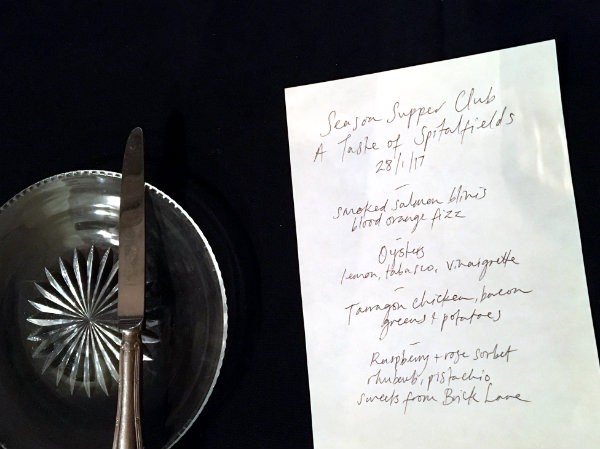 Season Supper Club
A Taste of Spitalfields
28/1/17
–
smoked salmon blinis
blood orange fizz
–
Oysters
lemon, tabasco, vinaigrette
–
Tarragon chicken, bacon
greens + potatoes
–
Raspberry + rose sorbet
rhubarb, pistachio
sweets from Brick Lane